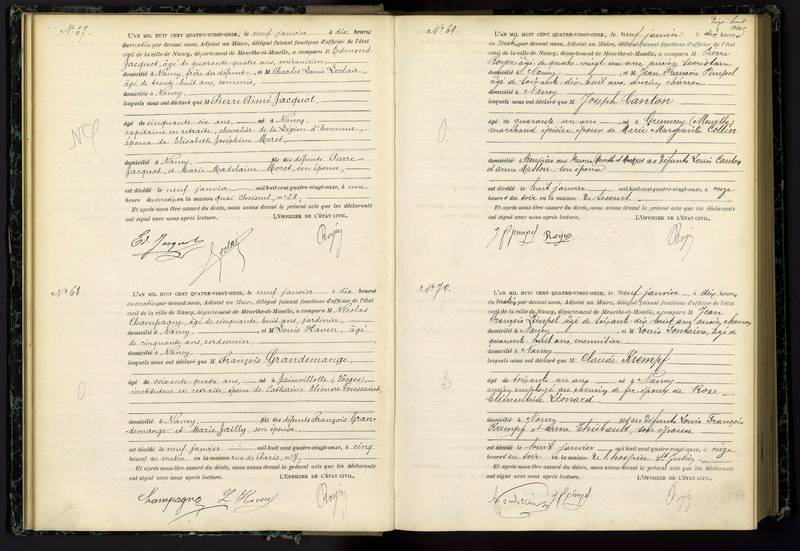 N° 67.
L'AN MIL HUIT CENT QUATRE-VINGT-ONZE, le neuf janvier à dix heures
du matin par devant nous, Adjoint au Maire, délégué faisant fonctions d'officier de l'état
civil de la ville de Nancy, département de Meurthe-et-Moselle, a comparu M Edmond
Jacquot, âgé de quarante quatre ans, mécanicien,
domicilié à Nancy, frère du défunt, et M Charles Louis Leclair,
âgé de trente huit ans, commis,
domicilié à Nancy,
lesquels nous ont déclaré que M Pierre Aimé Jacquot,
âgé de cinquante six ans, né à Nancy,
capitaine en retraite, chevalier de la Légion d'honneur,
époux de Elisabeth Joséphine Morot,
domicilié à Nancy, fils des défunts Pierre
Jacquot, et Marie Madelaine Morot, son épouse,
est décédé le neuf janvier mil huit cent quatre-vingt-onze, à une
heure du matin en la maison quai Choiseul, n° 28,
Et après nous être assuré du décès, nous avons dressé le présent acte que les déclarants
ont signé avec nous après lecture. L'OFFICIER DE L'ÉTAT CIVIL,
Ed. Jacquot
N° 68.
L'AN MIL HUIT CENT QUATRE-VINGT-ONZE, le neuf janvier à dix heures
du matin par devant nous, Adjoint au Maire, délégué faisant fonctions d'officier de l'état
civil de la ville de Nancy, département de Meurthe-et-Moselle, a comparu M Nicolas
Champagne, âgé de cinquante huit ans, jardinier,
domicilié à Nancy, et M Louis Haven, âgé
de cinquante ans, cordonnier,
domicilié à Nancy,
lesquels nous ont déclaré que M François Grandemange,
âgé de soixante quatre ans, né à Jainvillotte (Vosges),
instituteur en retraite, époux de Catherine Toussaint,
domicilié à Nancy, fils des défunts François Gran-
demange et Marie Jailly, son épouse,
est décédé le neuf janvier mil huit cent quatre-vingt-onze, à cinq
heures du matin en la maison rue de Paris, n° 7,
Et après nous être assuré du décès, nous avons dressé le présent acte que les déclarants
ont signé avec nous après lecture. L'OFFICIER DE L'ÉTAT CIVIL,
Champagne L. Haven
Dix huit
N° 69.
L'AN MIL HUIT CENT QUATRE-VINGT-ONZE, le neuf janvier à dix heures
du matin par devant nous, Adjoint au Maire, délégué faisant fonctions d'officier de l'état
civil de la ville de Nancy, département de Meurthe-et-Moselle, a comparu M Pierre
Royer âgé de quatre vingt un ans, ancien
domicilié à Nancy et M Jean François Pimpel
âgé de soixante dix huit ans, ancien charron
domicilié à Nancy
lesquels nous ont déclaré que M Joseph Canton
âgé de quarante un ans né à (Meurthe)
marchand épicier, époux de Marie Marguerite Collin
domicilié à Meurthe et Moselle des défunts Louis Canton
et Anne Masson, son épouse
est décédé le huit janvier mil huit cent quatre-vingt-onze, à onze
heures du soir en la maison de secours
Et après nous être assuré du décès, nous avons dressé le présent acte que les déclarants
ont signé avec nous après lecture. L'OFFICIER DE L'ÉTAT CIVIL,
J F Pimpel Royer
N° 70.
L'AN MIL HUIT CENT QUATRE-VINGT-ONZE, le neuf janvier à dix heures
du matin par devant nous, Adjoint au Maire, délégué faisant fonctions d'officier de l'état
civil de la ville de Nancy, département de Meurthe-et-Moselle, a comparu M Jean
François Pimpel âgé de soixante dix huit ans, ancien charron
domicilié à Nancy et M Louis Fontaine, âgé de
quarante huit ans, menuisier
domicilié à Nancy
lesquels nous ont déclaré que M Claude Krempf
âgé de soixante un ans né à Nancy
ancien employé au chemin de fer époux de Rose
Clémentine Léonard
domicilié à Nancy fils des défunts Louis François
Krempf et Anne Thiébault, son épouse
est décédé le huit janvier mil huit cent quatre-vingt-onze, à onze
heures du soir en la maison de l'hospice St Julien
Et après nous être assuré du décès, nous avons dressé le présent acte que les déclarants
ont signé avec nous après lecture. L'OFFICIER DE L'ÉTAT CIVIL,
J F Pimpel